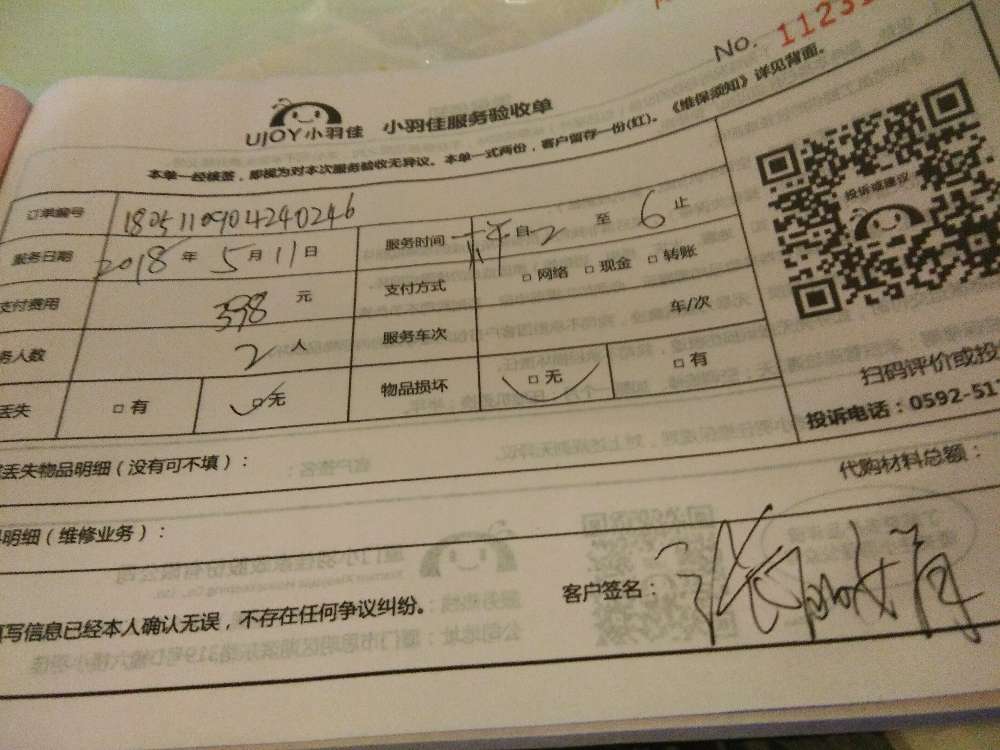 No. 1123
UJOY小羽佳 小羽佳服务验收单
本单一经核签，即视为对本次服务验收无异议。本单一式两份，客户留存一份(红)。《维保须知》详见背面。
订单编号 1805110904240246
服务日期 2018年5月11日 服务时间 自2至6止
支付费用 398元 支付方式 □网络 □现金 □转账
务人数 2人 服务车次 车/次
丢失 □有 □无 物品损坏 □无 □有
投诉或建议
扫码评价或投
投诉电话：0592-51
丢失物品明细（没有可不填）：
代购材料总额：
明细（维修业务）：
写信息已经本人确认无误，不存在任何争议纠纷。
客户签名：